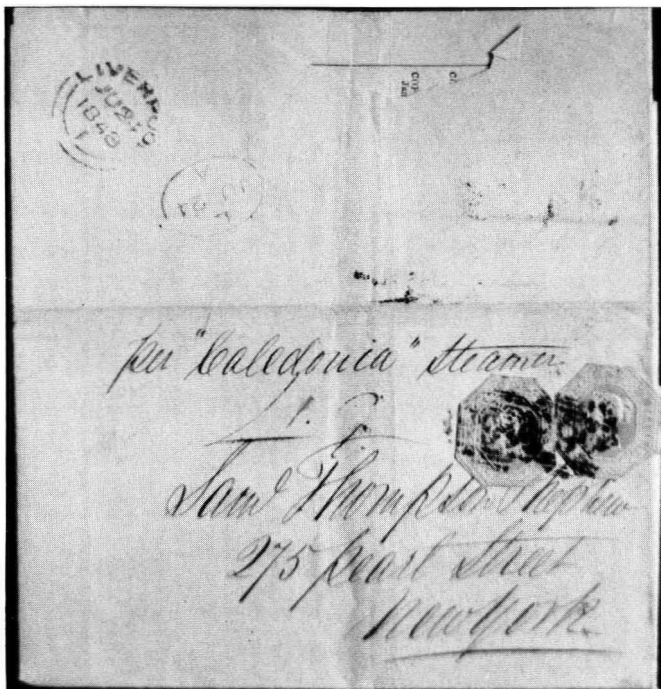 LIVERPOOL
1848
per "Caledonia" Steamer
Saml Thompson & Nephew
275 Pearl Street
New York